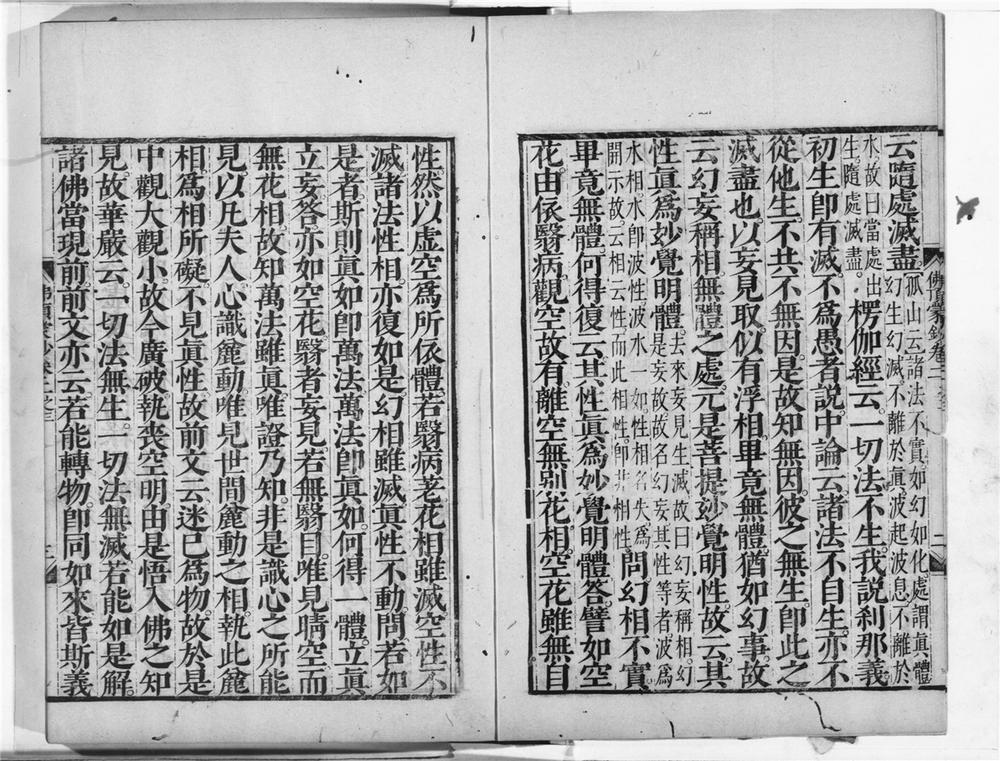 云隨處滅盡。孤山云諸法不實如幻如化。處謂眞體
幻生幻滅。不離於眞。波起波息。不離於
水故曰當處出
生。隨處滅盡。楞伽經云。一切法不生。我説刹那義
初生即有滅。不爲愚者説。中論云諸法不自生。亦不
從他生。不共不無因。是故知無因。彼之無生。即此之
滅盡也。以妄見取。似有浮相。畢竟無體。猶如幻事。故
云幻妄稱相。無體之處。元是菩提妙覺明性故。云其
性眞爲妙覺明體。去來妄見生滅。故曰幻妄稱相。幻
體是妄故。故名幻妄。其性等者。波爲
水相。水即波性。波水一如。性相名失。爲
開示故。云相云性。而此相性。即非相性。問幻相不實。
畢竟無體。何得復云。其性眞爲妙覺明體。答譬如空
花。由依翳病觀空故有。離空無別花相。空花雖無自
佛頂蒙鈔卷二之三
二
性。然以虚空爲所依體。若翳病老花相雖滅。空性不
滅。諸法性相。亦復如是。幻相雖滅。眞性不動。問若如
是者。斯則眞如即萬法。萬法即眞如。何得一體。立眞
立妄。答亦如空花。翳者妄見。若無翳目。唯見晴空。而
無花相。故知萬法雖眞。唯證乃知。非是識心之所能
見。以凡夫人。心識麄動。唯見世間麄動之相。執此麄
相。爲相所礙。不見眞性。故前文云。迷己爲物。故於是
中觀大觀小。故今廣破。執喪空明。由是悟入佛之知
見。故華嚴云。一切法無生。一切法無滅。若能如是解。
諸佛當現前。前文亦云。若能轉物。即同如來。皆斯義
佛頂蒙鈔卷二之三
三